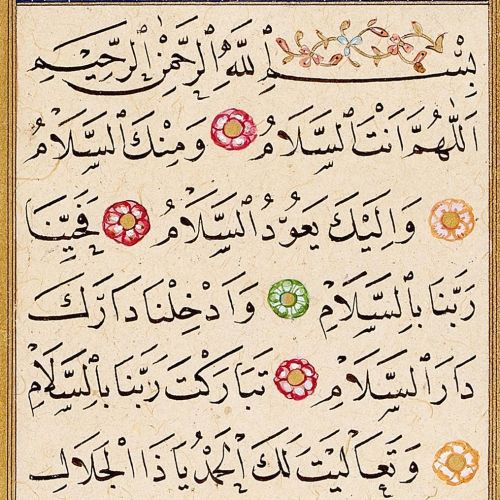 بِسْمِ اللّٰهِ الرَّحْمٰنِ الرَّحِيمِ
اَللّٰهُمَّ اَنْتَ السَّلَامُ وَمِنْكَ السَّلَامُ
وَاِلَيْكَ يَعُودُ السَّلَامُ فَحَيِّنَا
رَبَّنَا بِالسَّلَامِ وَاَدْخِلْنَا دَارَكَ
دَارَ السَّلَامِ تَبَارَكْتَ رَبَّنَا بِالسَّلَامِ
وَتَعَالَيْتَ لَكَ الْحَمْدُ يَا ذَا الْجَلَالِ